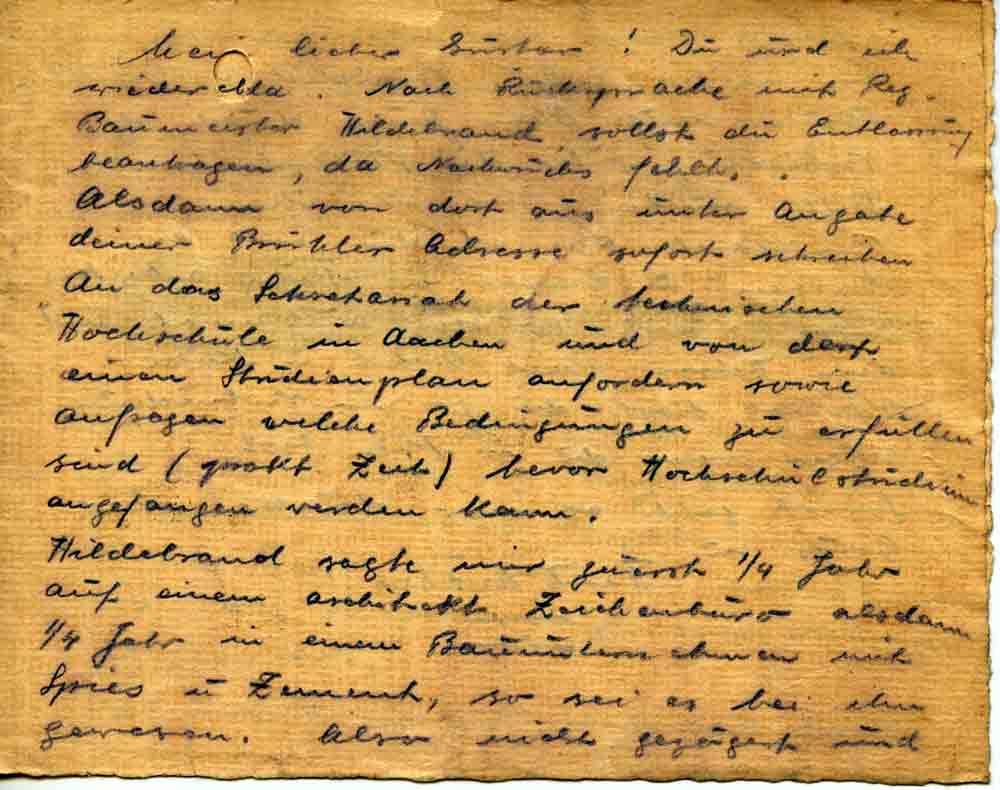 Mein lieber Gustav! Du und ich
wieder da. Nach Rücksprache mit Reg.
Baumeister Hildebrand, sollst du Entlassung
beantragen, da Nachwuchs fehlt.
Alsdann von dort aus unter Angabe
deiner Adresse sofort schreiben
An das Sekretariat der technischen
Hochschule in Aachen und von dort
einen Studienplan anfordern sowie
anfragen welche Bedingungen zu erfüllen
sind (prakt Zeit) bevor Hochschulstudium
angefangen werden kann.
Hildebrand sagte mir zuerst 1/4 Jahr
auf einem architekt Zeichenbüro alsdann
1/4 Jahr in einem Bauunternehmen mit
Spies u Zement, so sei es bei ihm
gewesen. Also nicht gezögert und